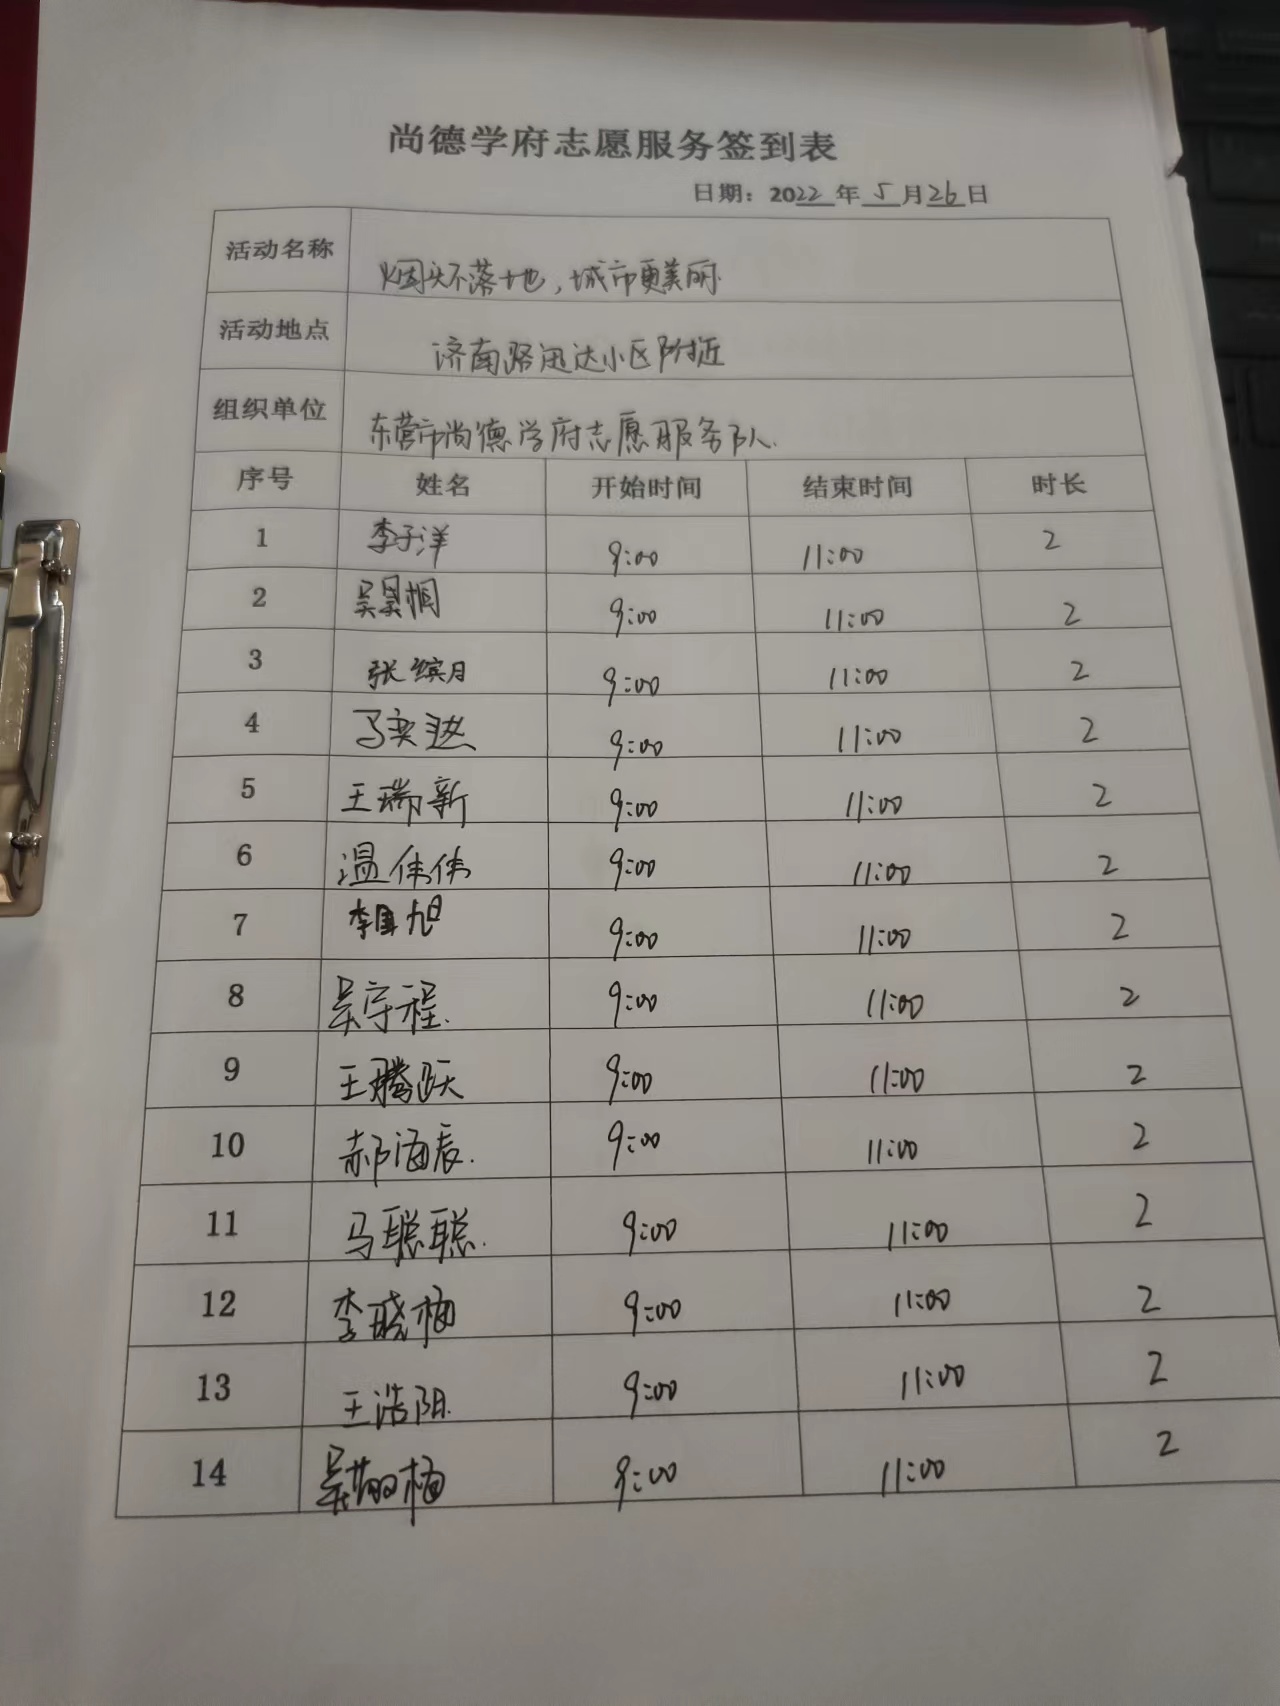 尚德学府志愿服务签到表
日期：2022年5月26日
活动名称 烟头不落地，城市更美丽.
活动地点 济南路迅达小区附近
组织单位 东营市尚德学府志愿服务队.
序号 姓名 开始时间 结束时间 时长
1 李子洋 9:00 11:00 2
2 吴昊桐 9:00 11:00 2
3 张缤月 9:00 11:00 2
4 马奕 9:00 11:00 2
5 王瑞新 9:00 11:00 2
6 温伟伟 9:00 11:00 2
7 李国旭 9:00 11:00 2
8 吴宇程. 9:00 11:00 2
9 王腾跃 9:00 11:00 2
10 郝海辰. 9:00 11:00 2
11 马聪聪. 9:00 11:00 2
12 李晓楠 9:00 11:00 2
13 王浩阳. 9:00 11:00 2
14 吴 9:00 11:00 2